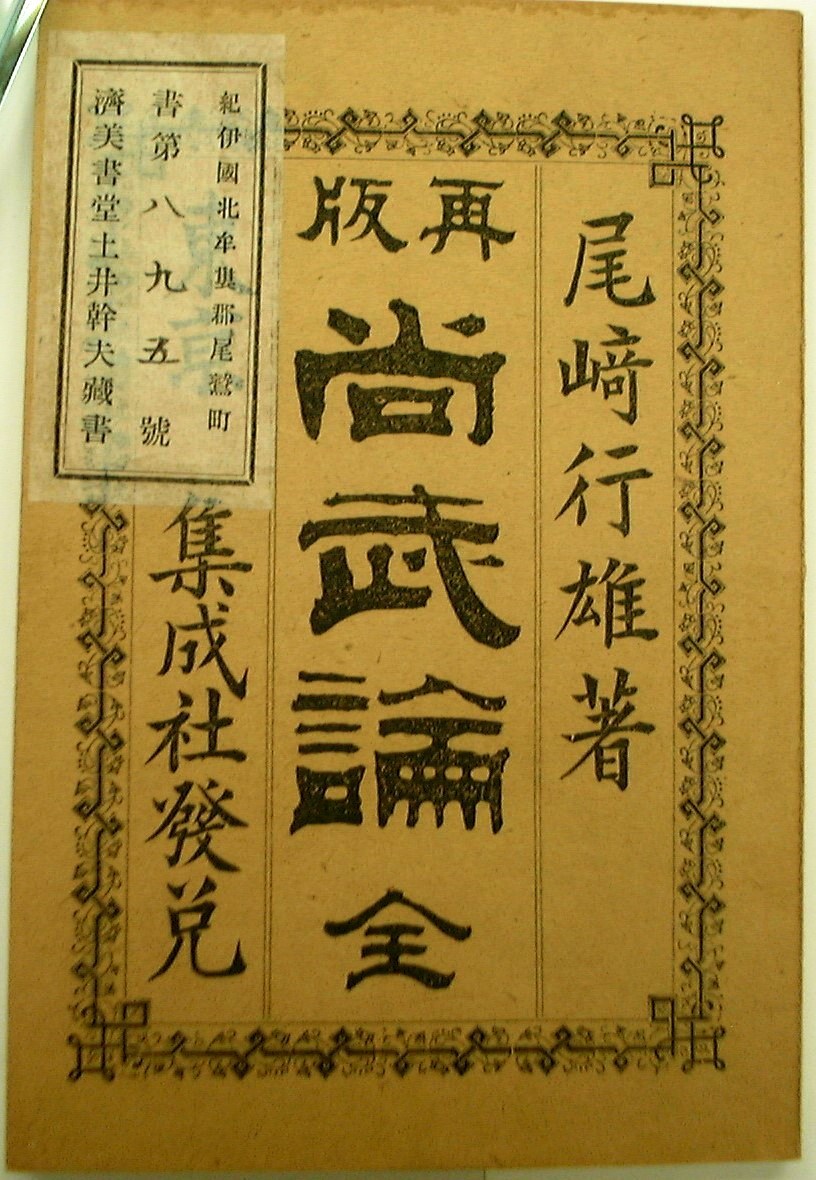 尾﨑行雄著
再版
尚武論 全
東京
集成社發兌
紀伊國北牟婁郡尾鷲町
書第八九五號
濟美書堂土井幹夫藏書